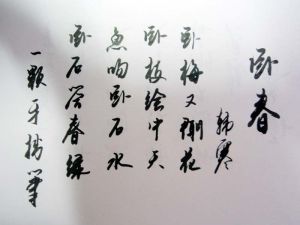 卧春
韩寒
卧梅又闻花
卧枝绘中天
鱼吻卧石水
卧石答春绿
一颗牙搏笔